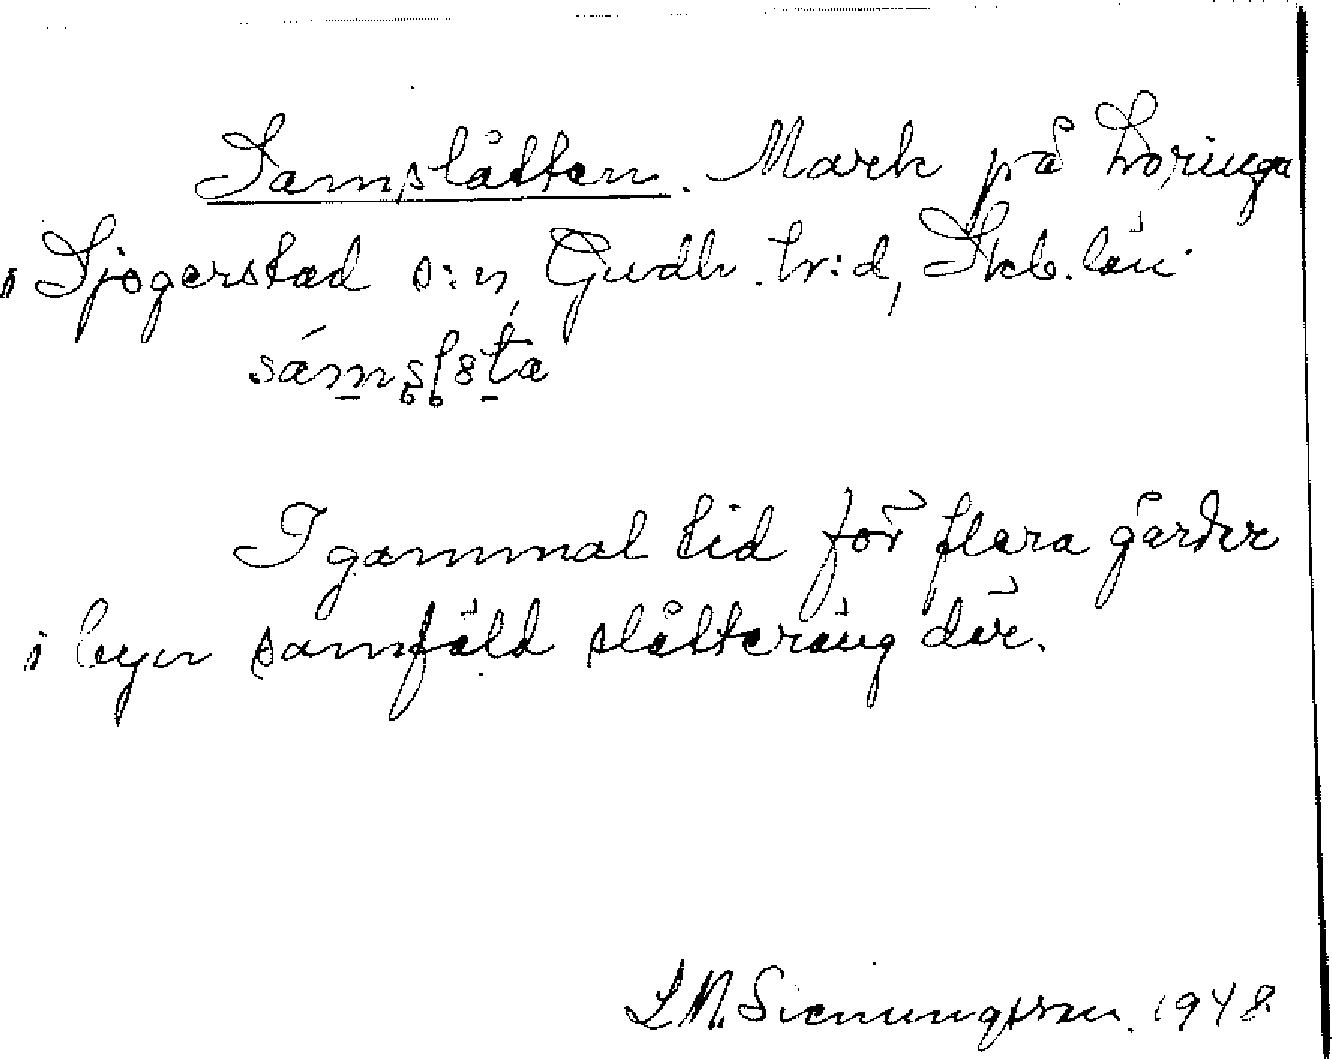 Samslåtten. Mark på Loringa
i Sjogerstad s:n, Gudh. hr:d, Skb. län.
I gammal tid för flera gårder
i byn samfäld slåtteräng där.
L M. Svenungsson. 1948